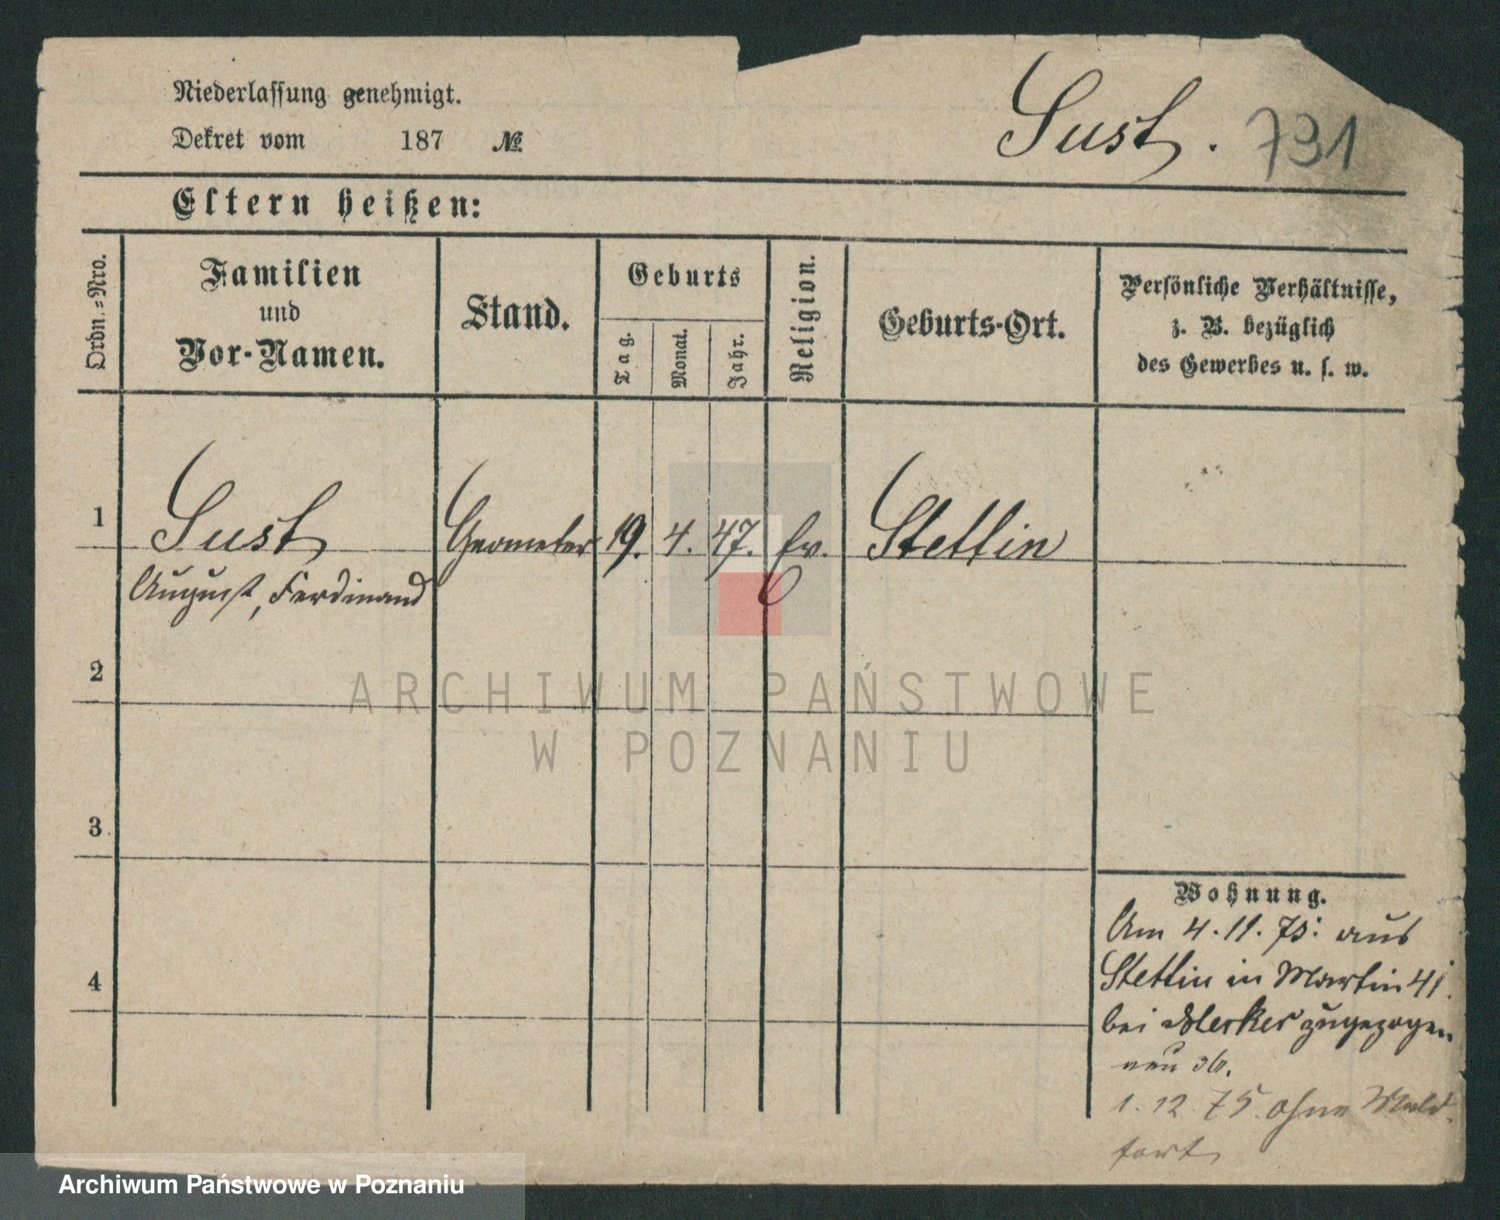 Niederlassung genehmigt.
Dekret vom 187 №
Sust. 731
Eltern heißen:
Ordn.-Nro.
Familien
und
Vor-Namen.
Stand.
Geburts
Tag.
Monat.
Jahr.
Religion.
Geburts-Ort.
Persönliche Verhältnisse,
z. B. bezüglich
des Gewerbes u. s. w.
1 Sust Geometer 19. 4. 47. Ev. Stettin
August, Ferdinand
2
3
4
ARCHIWUM PAŃSTWOWE
W POZNANIU
Wohnung.
Am 4. 11. 75: aus
Stettin in Martin 41.
bei zugezogen
1. 12. 75. ohne Meld.
fort
Archiwum Państwowe w Poznaniu